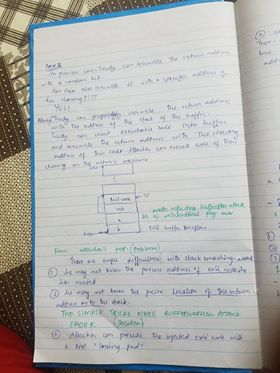 Case 2
In previous case, Trudy can overwrite the return address
with a random bit.
Can she also overwrite it with a specific address of
his choosing????
YES!
Trudy can overwrite the return address
with the address of the start of the buffer.
Trudy can insert executable code into buffer
and overwrite the return address with the starting
address of this code. Attacker can execute code of their
choosing on the victim's machine
Evil code
ret
a
b
Evil buffer overflow
From attacker's POV: (Problems)
There are couple difficulties with stack smashing attack
① he may not know the precise address of evil code she
has inserted
② he may not know the precise location of the return
address onto the stack.
TWO SIMPLE TRICKS MAKE BUFFEROVERFLOW ATTACK
EASIER (Solution)
① Attacker can precede the injected evil code with
a NOP "landing pad"